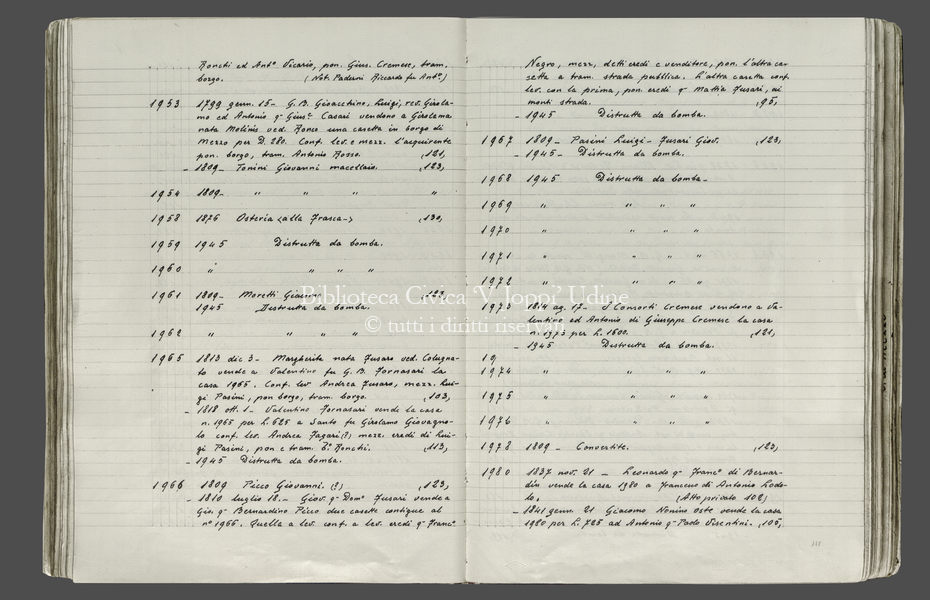 Ronchi ed Antº Vicario, pon. Gius. Cremese, tram.
borgo. (Not. Paderni Riccardo fu Antº)
1953 1799 genn. 15 - G. B. Gioacchino, Luigi, rev. Girola-
mo ed Antonio qº Giusº Casari vendono a Girolama
nata Molinis ved. Rosso una casetta in borgo di
mezzo per D. 280. Conf. lev. e mezz. l'acquirente
pon. borgo, tram. Antonio Rosso. ,121,
- 1809 - Tonini Giovanni macellaio. ,123,
1954 1809 - " " " "
1958 1876 Osteria <alla Frasca-> ,130,
1959 1945 Distrutta da bomba.
1960 " " " "
1961 1809 - Moretti Giacomo ,123,
1945 Distrutta da bomba.
1962 " " " "
1965 1813 dic 3 - Margherita nata Fusaro ved. Cologna-
to vende a Valentino fu G. B. Fornasari la
casa 1965. Conf. lev. Andrea Fusaro, mezz. Lui-
gi Pasini, pon borgo, tram. borgo. ,103,
- 1818 ott. 1 - Valentino Fornasari vende la casa
n. 1965 per L. 625 a Santo fu Girolamo Giovagno-
lo conf. lev. Andrea Fagari (?) mezz. eredi di Lui-
gi Pasini, pon e tram. Ronchi. ,113,
- 1945 Distrutta da bomba.
1966 1809 Picco Giovanni. (?) ,123,
- 1810 luglio 18. - Giov. qº Domº Fusari vende a
Gio. qº Bernardino Picco due casette contigue al
nº 1966. Quella a lev. conf. a lev. eredi qº Francº
Negro, mezz, detti eredi e venditore, pon. l'altra ca-
setta a tram. strada pubblica. L'altra casetta conf.
lev. con la prima, pon. eredi qº Mattia Fusari, ai
monti strada. ,95,
- 1945 Distrutta da bomba.
1967 1809 - Pasini Luigi - Fusari Giov. ,123,
- 1945 - Distrutta da bomba.
1968 1945 Distrutta da bomba -
1969 " " " "
1970 " " " "
1971 " " " "
1972 " " " "
1973 1814 ag. 17 - I Consorti Cremese vendono a Va-
lentino ed Antonio di Giuseppe Cremese la casa
n. 1973 per L. 1600. ,121,
- 1945 Distrutta da bomba.
19
1974 " " " "
1975 " " " "
1976 " " " "
1978 1809 - Convertite. ,123,
1980 1837 nov. 21 - Leonardo qº Francº di Bernar-
din vende la casa 1980 a Franceno di Antonio Lodo-
lo. (Atto privato 102)
- 1841 genn. 21 Giacomo Nonino oste vende la casa
1980 per L. 725 ad Antonio qº Paolo Visentini. ,105,
Biblioteca Civica 'V. Joppi' Udine
© tutti i diritti riservati